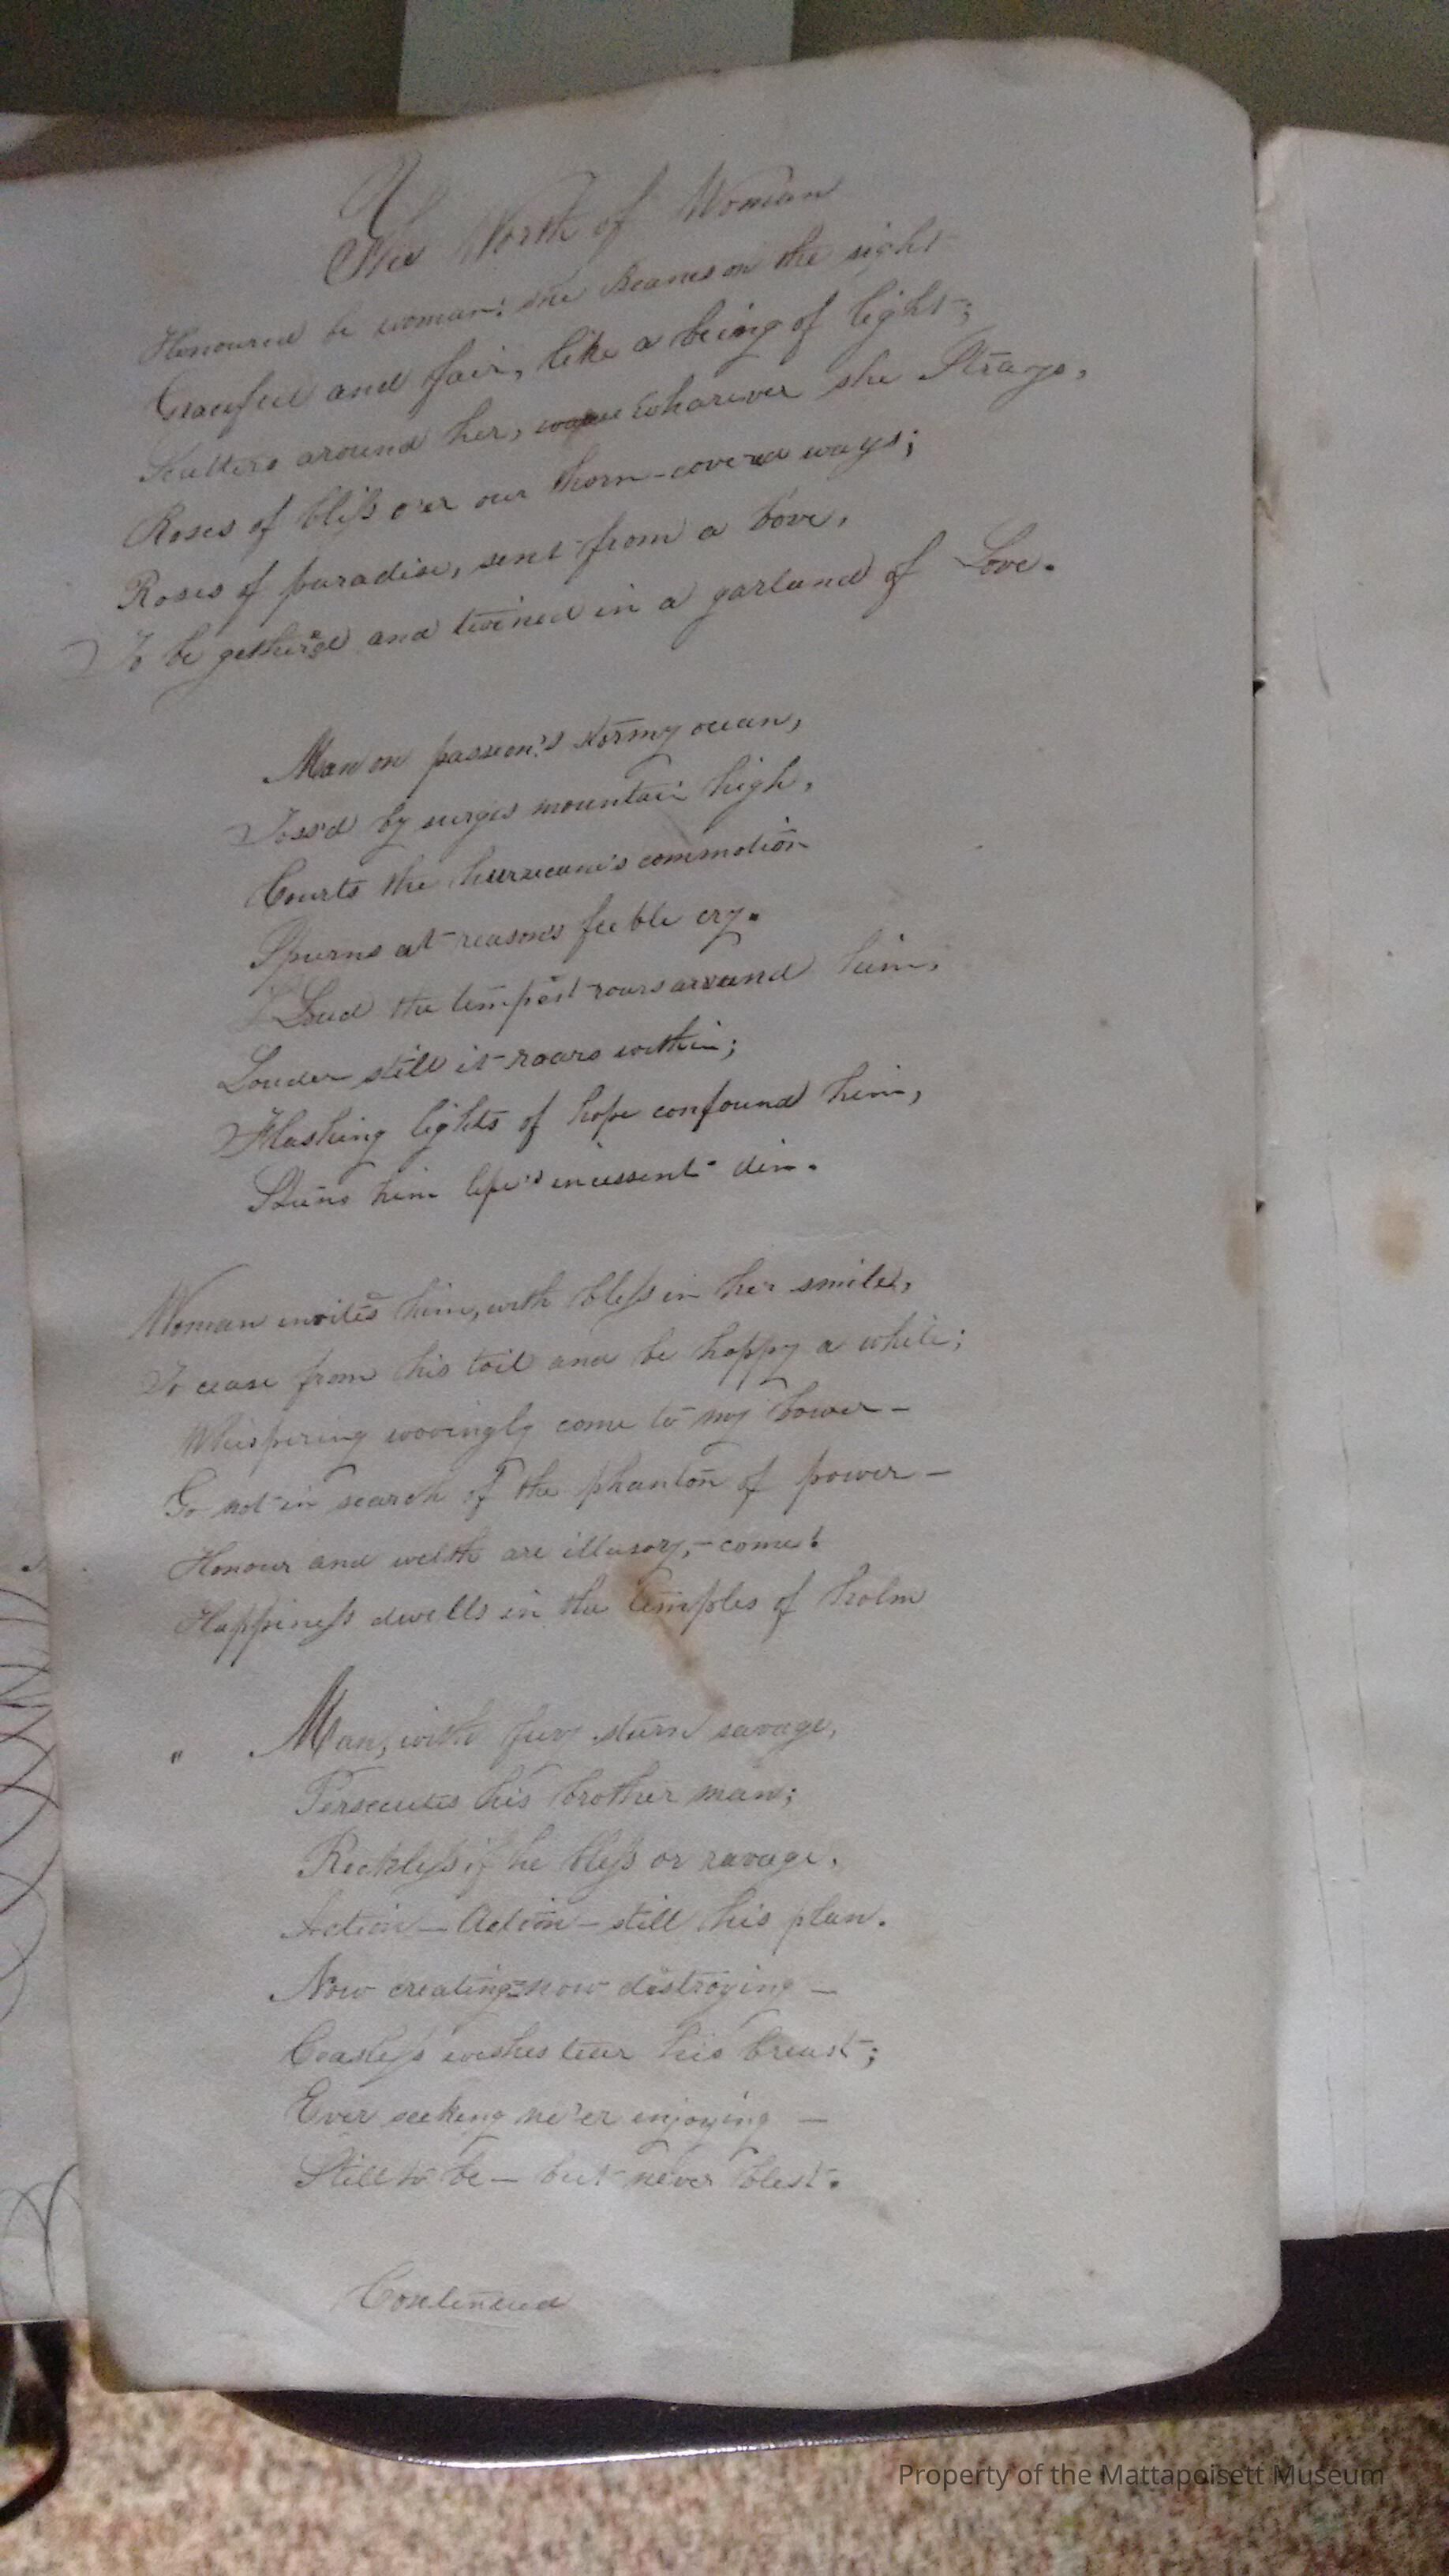 The Worth of Woman
Honoured be woman! she Beames on the sight
Gracefull and fair, like a being of light;
Scatters around her, wharever she Strays,
Roses of bliſs o'er our thorn-covered ways;
Roses of paradise, sent from a bove,
To be gethered and twined in a garland of Love.
Man on passion's stormy ocean,
Toss'd by surges mountain high,
Courts the hurricane's commotion
Spurns at reasons feeble cry.
Loud the tempest roars around him,
Louder still it roars within;
Flashing lights of hope confound him,
Stuns him life's incessent din.
Woman invites him, with bleſs in her smile,
To cease from his toil and be happy a while;
Whispering wooingly come to my bower-
Go not in search of the phanton of power-
Honour and welth are illusory,- come!
Happineſs dwells in the temples of holm
" Man, with fury stern savage,
Persecutes his brother man;
Reckleſs if he bleſs or ravage,
Action- Action- still his plan.
Now creating=now distroying-
Ceasleſs wishes tear his breast;
Ever seeking ne'er enjoying-
Still to be- but never blest.
Continued
Property of the Mattapoisett Museum